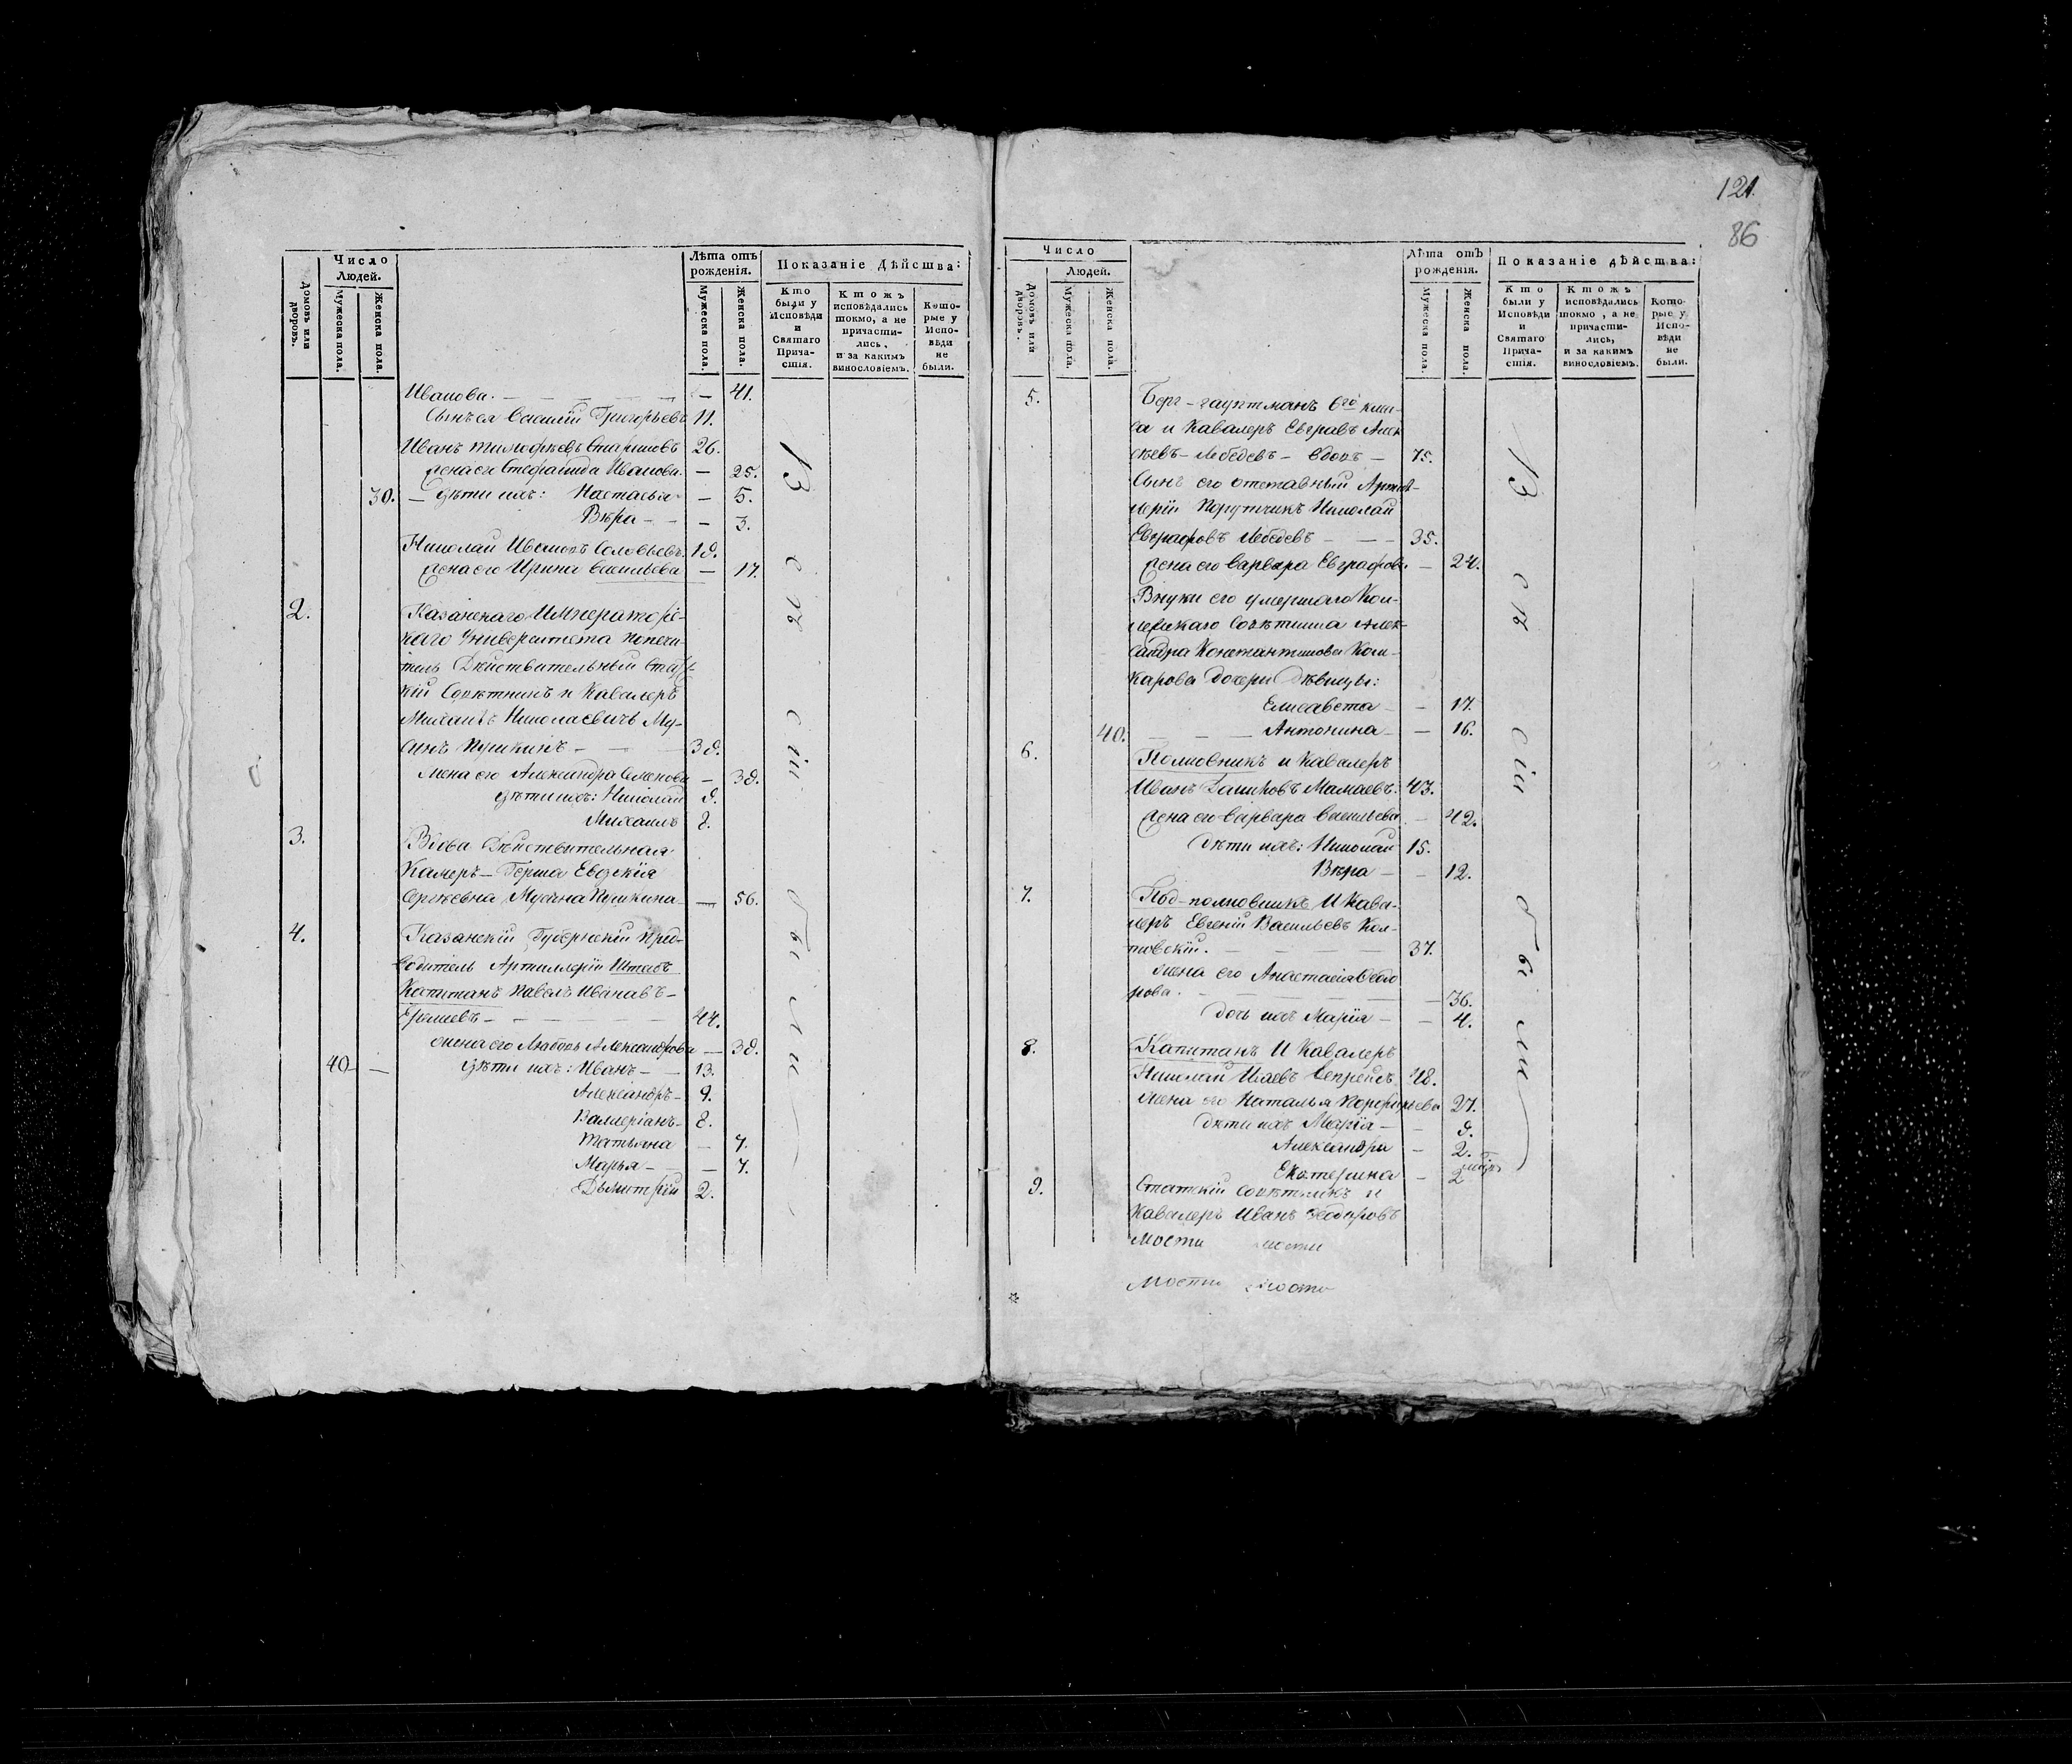 121.
86
Число
Людей.
Лѣта отъ
рожденія.
Показаніе Дѣйства:
Домовъ или
дворовъ.
Мужеска пола.
Женска пола.
Мужеска пола.
Женска пола.
Кто
были у
Исповѣди
и
Святаго
Прича-
стія.
Ктожъ
исповѣдались
токмо, а не
причасти-
лись,
и за какимъ
винословіемъ.
Кото-
рые у
Испо-
вѣди
не
были.
Иванова. — 41.
Сынъ ея Василій Григорьевъ 11.
Иванъ Тимофѣевъ 26.
жена его Стефанида Иванова — 25.
30. — дѣти ихъ: Настасья — 5.
Вѣра — 3.
Николай Ивановъ Соловьевъ. 19.
жена его Ирина Васильева — 17.
2. Казанскаго Императорс-
каго Университета попечи-
тель Дѣйствительный Статс-
кій Совѣтникъ и Кавалеръ
Михаилъ Николаевичъ Му-
синъ Пушкинъ — 39.
жена его Александра Семенова — 39.
дѣти ихъ: Николай 9.
Михаилъ 8.
3. Вдова Дѣйствительная
Камеръ-Герша Евдокія
Сергѣевна Мусина Пушкина — 56.
4. Казанскій Губернскій Пред-
водитель Артиллеріи Штабъ
Капитанъ Павелъ Ивановъ —
44.
жена его Любовь Александрова — 39.
40 — дѣти ихъ: Иванъ — 13.
Александръ — 9.
Валеріанъ — 8.
Татьяна — 7.
Марья — 7.
Дьмитрій 2.
Всѣ сіи были
Число
Людей.
Лѣта отъ
рожденія.
Показаніе дѣйства:
Домовъ или
дворовъ.
Мужеска пола.
Женска пола.
Мужеска пола.
Женска пола.
Кто
были у
Исповѣди
и
Святаго
Прича-
стія.
Ктожъ
исповѣдались
токмо, а не
причасти-
лись,
и за какимъ
винословіемъ.
Кото-
рые у
Испо-
вѣди
не
были.
5. Берг-гауптманъ 6го клас-
са и Кавалеръ Евграфъ Алек
сѣевъ — Лебедевъ — вдовъ — 75.
Сынъ его отставный Артил-
леріи Порутчикъ Николай
Евграфовъ Лебедевъ — 35.
жена его Варвара Евграфова — 24.
Внуки его умершаго Кол-
лежскаго Совѣтника Алек-
сандра Константинова Ком-
карова дочери дѣвицы:
Елисавета — 17.
40. — Антонина — 16.
6. Полковникъ и Кавалеръ
Иванъ Мамаевъ. 43.
жена его Варвара Васильева. — 42.
дѣти ихъ: Николай 15.
Вѣра — 12.
7. Под-полковникъ и Кава-
леръ Евгеній Васильевъ Кол-
товскій. 37.
жена его Анастасія Ѳедо
рова. — 36.
дочь ихъ Марія — 4.
8. Капитанъ и Кавалеръ
Николай 48.
жена его Наталья Порфирьева 27.
дѣти ихъ Марія — 9.
Александра — 2.
Екатерина — 2
9. Статскій Совѣтникъ и
Кавалеръ Иванъ Ѳедоровъ
Мости мости
Мости мости
Всѣ сіи были